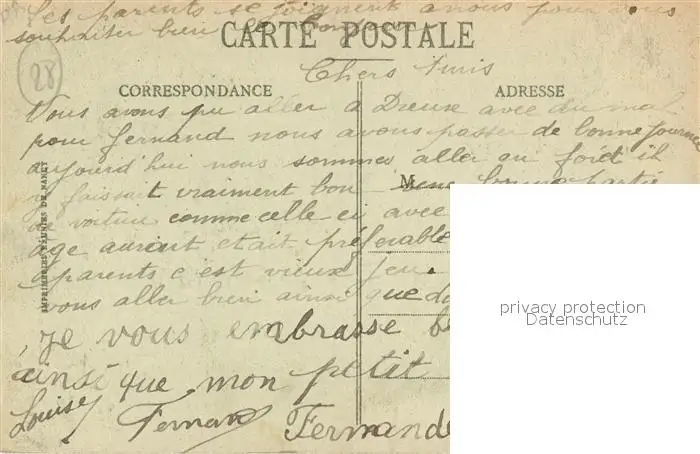 Les parents se joignent a nous pour vous
souhaiter bien le bonjour
CARTE POSTALE
28
Chers Amis
CORRESPONDANCE
ADRESSE
Nous avons pu aller a Dieuze avec du mal
pour fernand nous avons passer de bonne journée
aujourd'hui nous sommes aller au forêt il
y faisait vraiment bon bonne partie
M
de voiture comme celle ci avec
age aurait etait préferable
parents c'est vieux jeu.
vous aller bien ainsi que
je vous embrasse
ainsi que mon petit
Louise
Fernand
Fernande
IMPRIMERIES RÉUNIES DE NANCY
privacy protection
Datenschutz